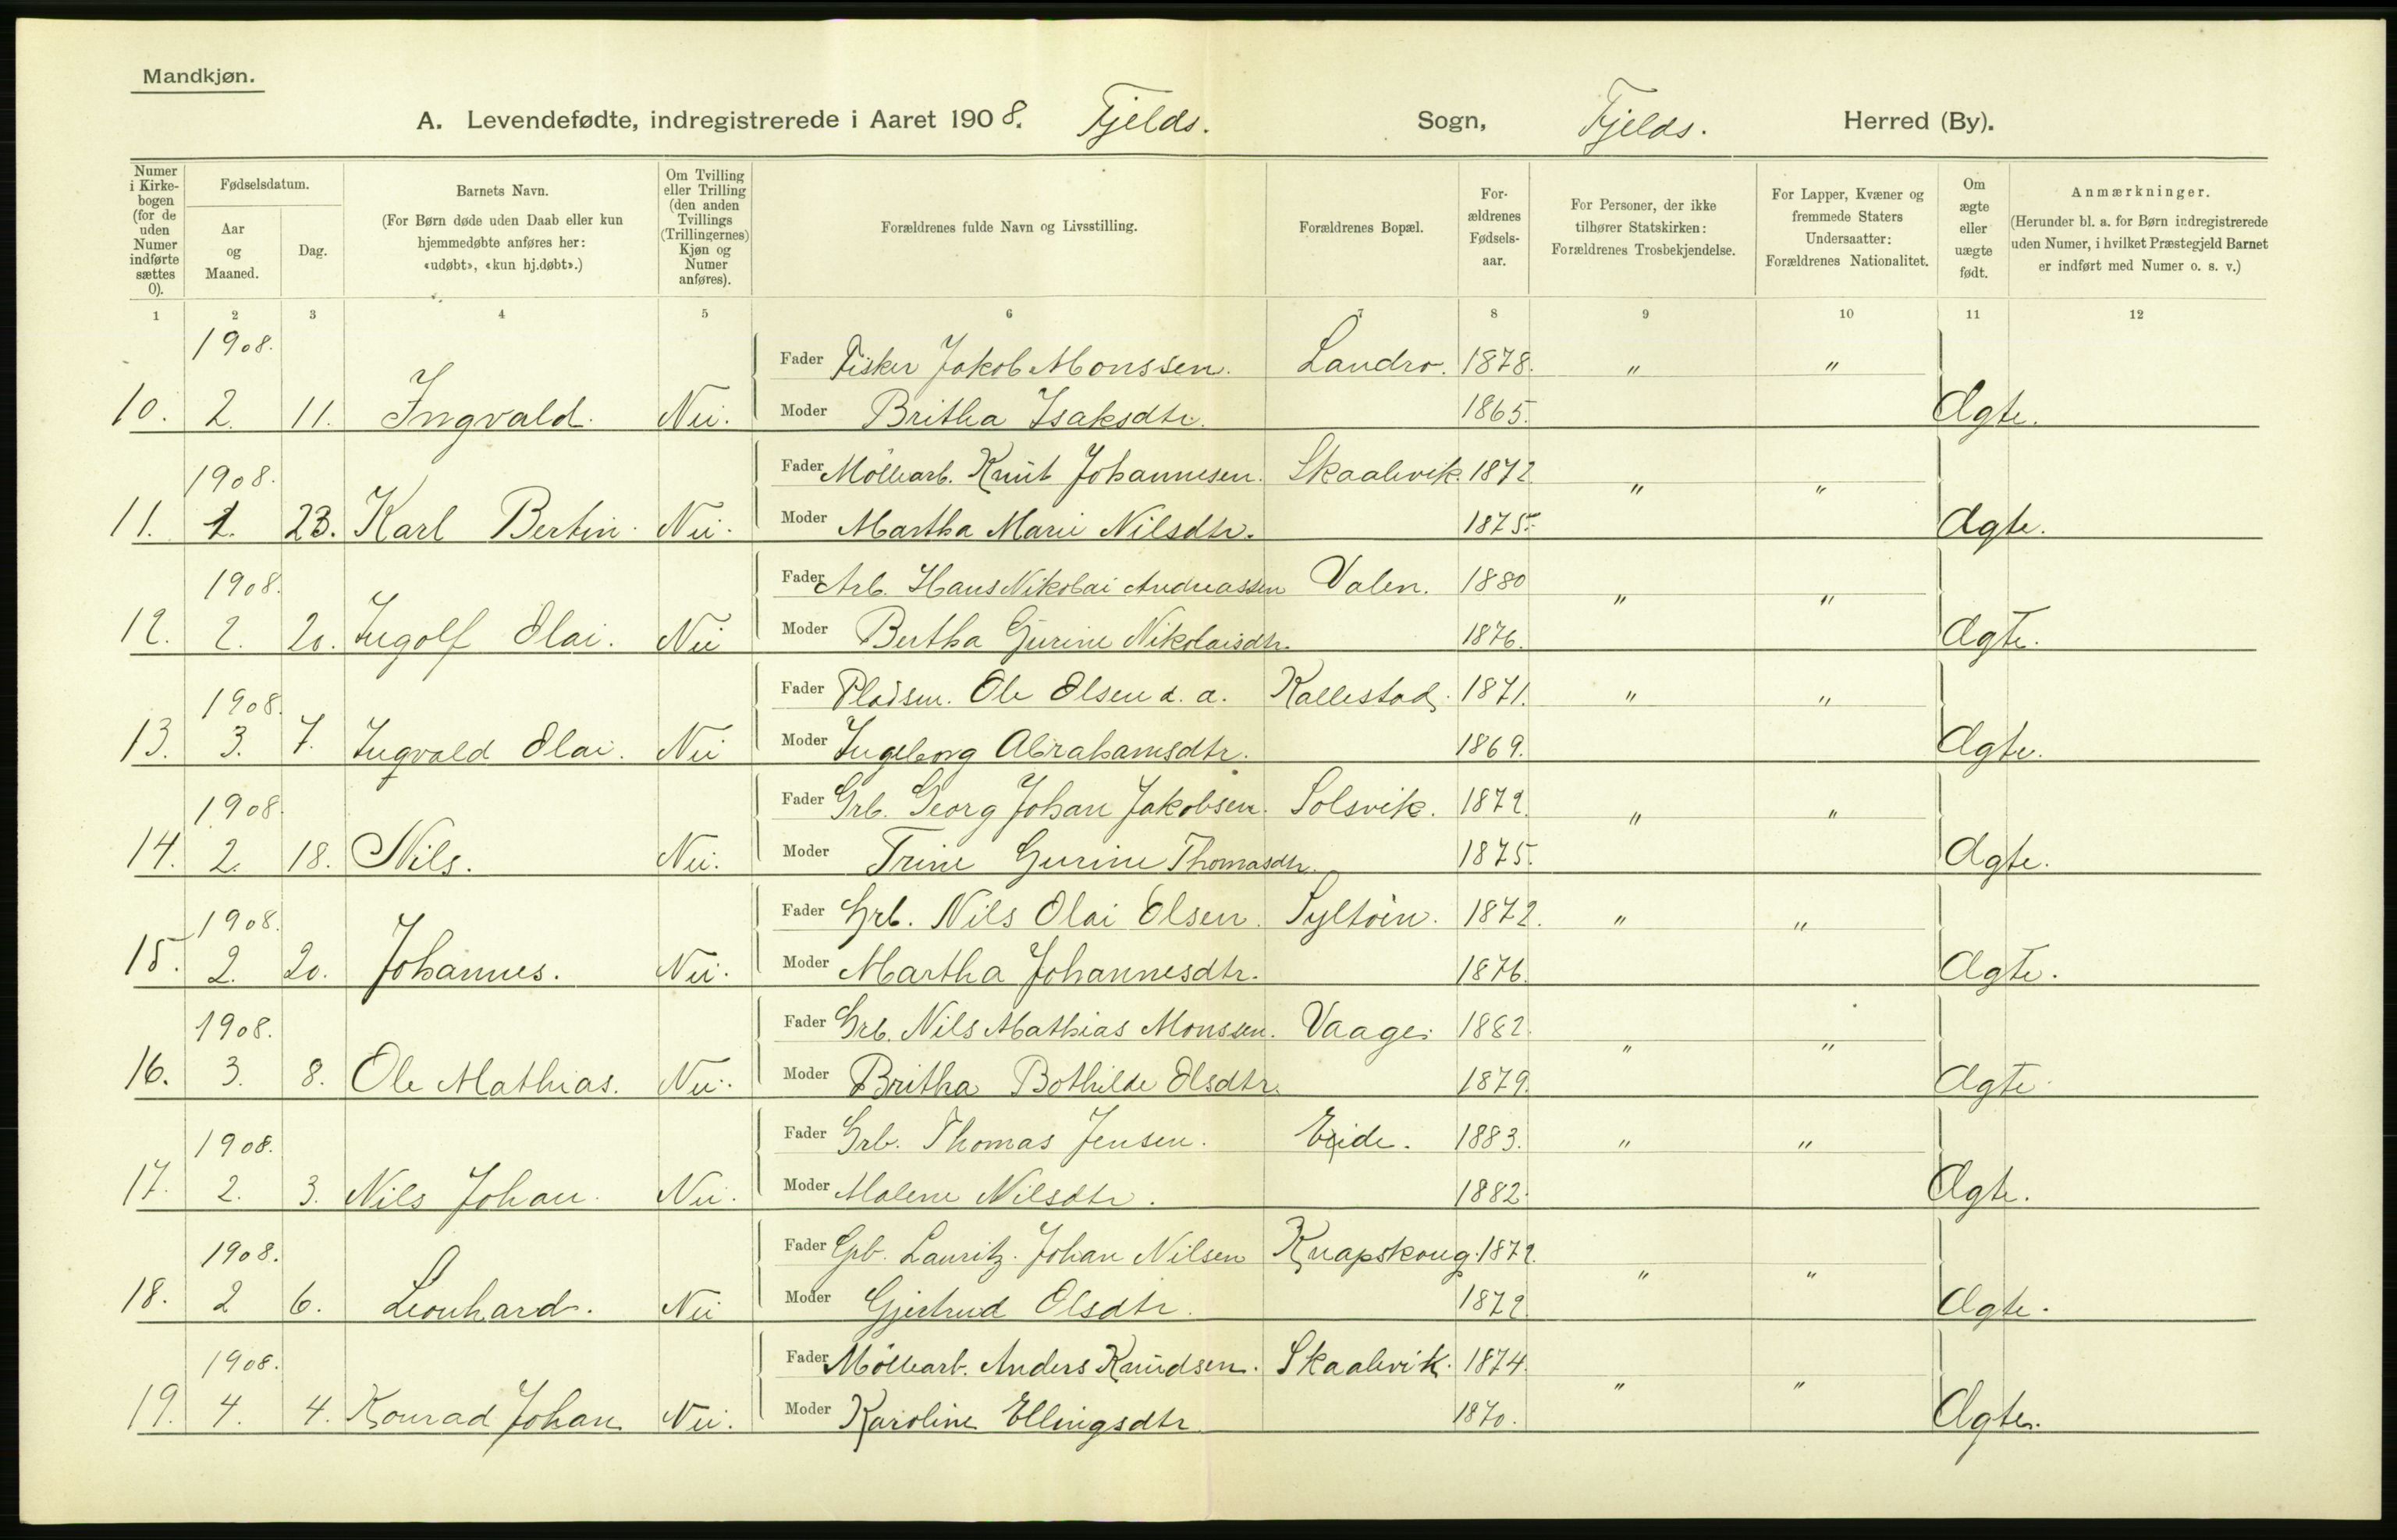 Mandkjøn.
A. Levendefødte, indregistrerede i Aaret 1908. Fjelds. Sogn, Fjelds. Herred (By).
Numer i Kirkebogen (for de uden Numer indførte sættes 0).
Fødselsdatum.
Aar og Maaned.
Dag.
Barnets Navn.
(For Børn døde uden Daab eller kun hjemmedøbte anføres her: «udøbt», «kun hj.døbt».)
Om Tvilling eller Trilling (den anden Tvillings (Trillingernes) Kjøn og Numer anføres).
Forældrenes fulde Navn og Livsstilling.
Forældrenes Bopæl.
Forældrenes Fødselsaar.
For Personer, der ikke tilhører Statskirken: Forældrenes Trosbekjendelse.
For Lapper, Kvæner og fremmede Staters Undersaatter: Forældrenes Nationalitet.
Om ægte eller uægte født.
Anmærkninger.
(Herunder bl. a. for Børn indregistrerede uden Numer, i hvilket Præstegjeld Barnet er indført med Numer o. s. v.)
1 2 3 4 5 6 7 8 9 10 11 12
1908. Fader Fisker Jakob Monssen. Landro. 1878. " "
10. 2. 11. Ingvald. Nei. Moder Britha Isaksdtr. 1865. Ægte.
1908. Fader Möllearb. Knut Johannesen. Skaalevik. 1872. " "
11. 1. 23. Karl Bertin. Nei. Moder Martha Marie Nilsdtr. 1875. Ægte.
1908. Fader Arb. Hans Nikolai Andreassen Valen. 1880 " "
12. 2. 20. Ingolf Olai. Nei Moder Bertha Gurine Nikolaisdtr. 1876. Ægte.
1908. Fader Pladsm. Ole Olsen d. a. Kallestad. 1871. " "
13. 3. 7. Ingvald Olai. Nei Moder Ingeborg Abrahamsdtr. 1869. Ægte.
1908. Fader Grb. Georg Johan Jakobsen. Solsvik. 1872. " "
14. 2. 18. Nils. Nei. Moder Trine Gurine Thomasdtr. 1875. Ægte.
1908. Fader Grb. Nils Olai Olsen. Syltöin. 1872. " "
15. 2. 20. Johannes. Nei. Moder Martha Johannesdtr. 1876. Ægte.
1908. Fader Grb. Nils Mathias Monssen. Vaage. 1882. " "
16. 3. 8. Ole Mathias. Nei. Moder Britha Bothilde Olsdtr. 1879. Ægte.
1908. Fader Grb. Thomas Jensen. Eide. 1883. " "
17. 2. 3. Nils Johan. Nei. Moder Malene Nilsdtr. 1882. Ægte.
1908. Fader Grb. Lauritz Johan Nilsen Knapskoug. 1872. " "
18. 2 6. Leonhard. Nei Moder Gjertrud Olsdtr. 1872. Ægte.
1908. Fader Möllearb. Anders Knudsen. Skaalevik. 1874. " "
19. 4. 4. Konrad Johan Nei. Moder Karoline Ellingsdtr 1870. Ægte.